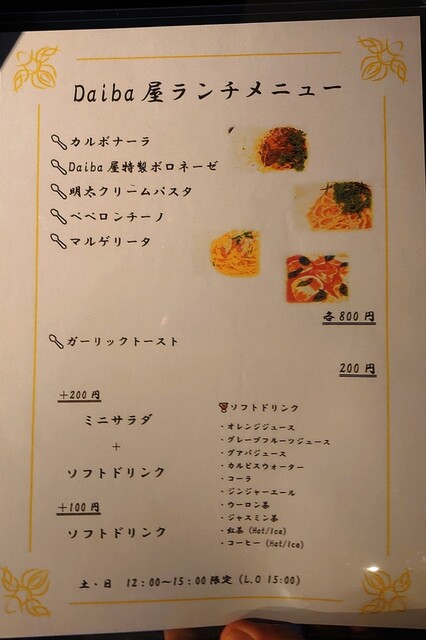 Daiba屋ランチメニュー
カルボナーラ
Daiba屋特製ボロネーゼ
明太クリームパスタ
ペペロンチーノ
マルゲリータ
各800円
ガーリックトースト
200円
+200円
ミニサラダ
+
ソフトドリンク
+100円
ソフトドリンク
ソフトドリンク
・オレンジジュース
・グレープフルーツジュース
・グアバジュース
・カルピスウォーター
・コーラ
・ジンジャーエール
・ウーロン茶
・ジャスミン茶
・紅茶 (Hot/Ice)
・コーヒー (Hot/Ice)
土・日 12:00～15:00限定 (L.O 15:00)